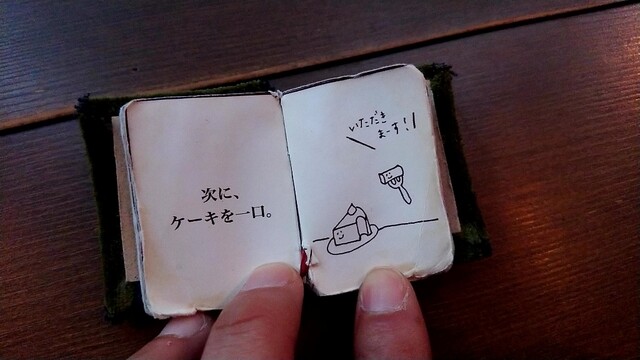 次に、
ケーキを一口。
いただき
まーす!!